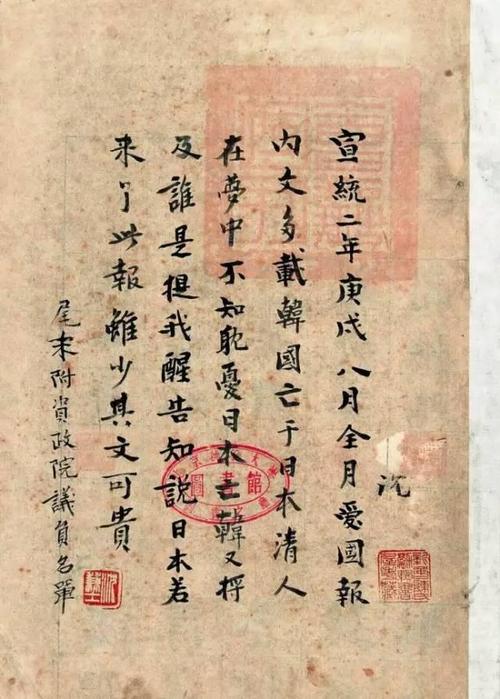 沉
宣統二年庚戌八月全月愛國報
内文多載韓國亡于日本清人
在夢中不知耽憂日本亡韓又將
及誰是提我醒告知説日本若
来了此報雖少其文可貴
尾末附資政院議員名單
館書圖